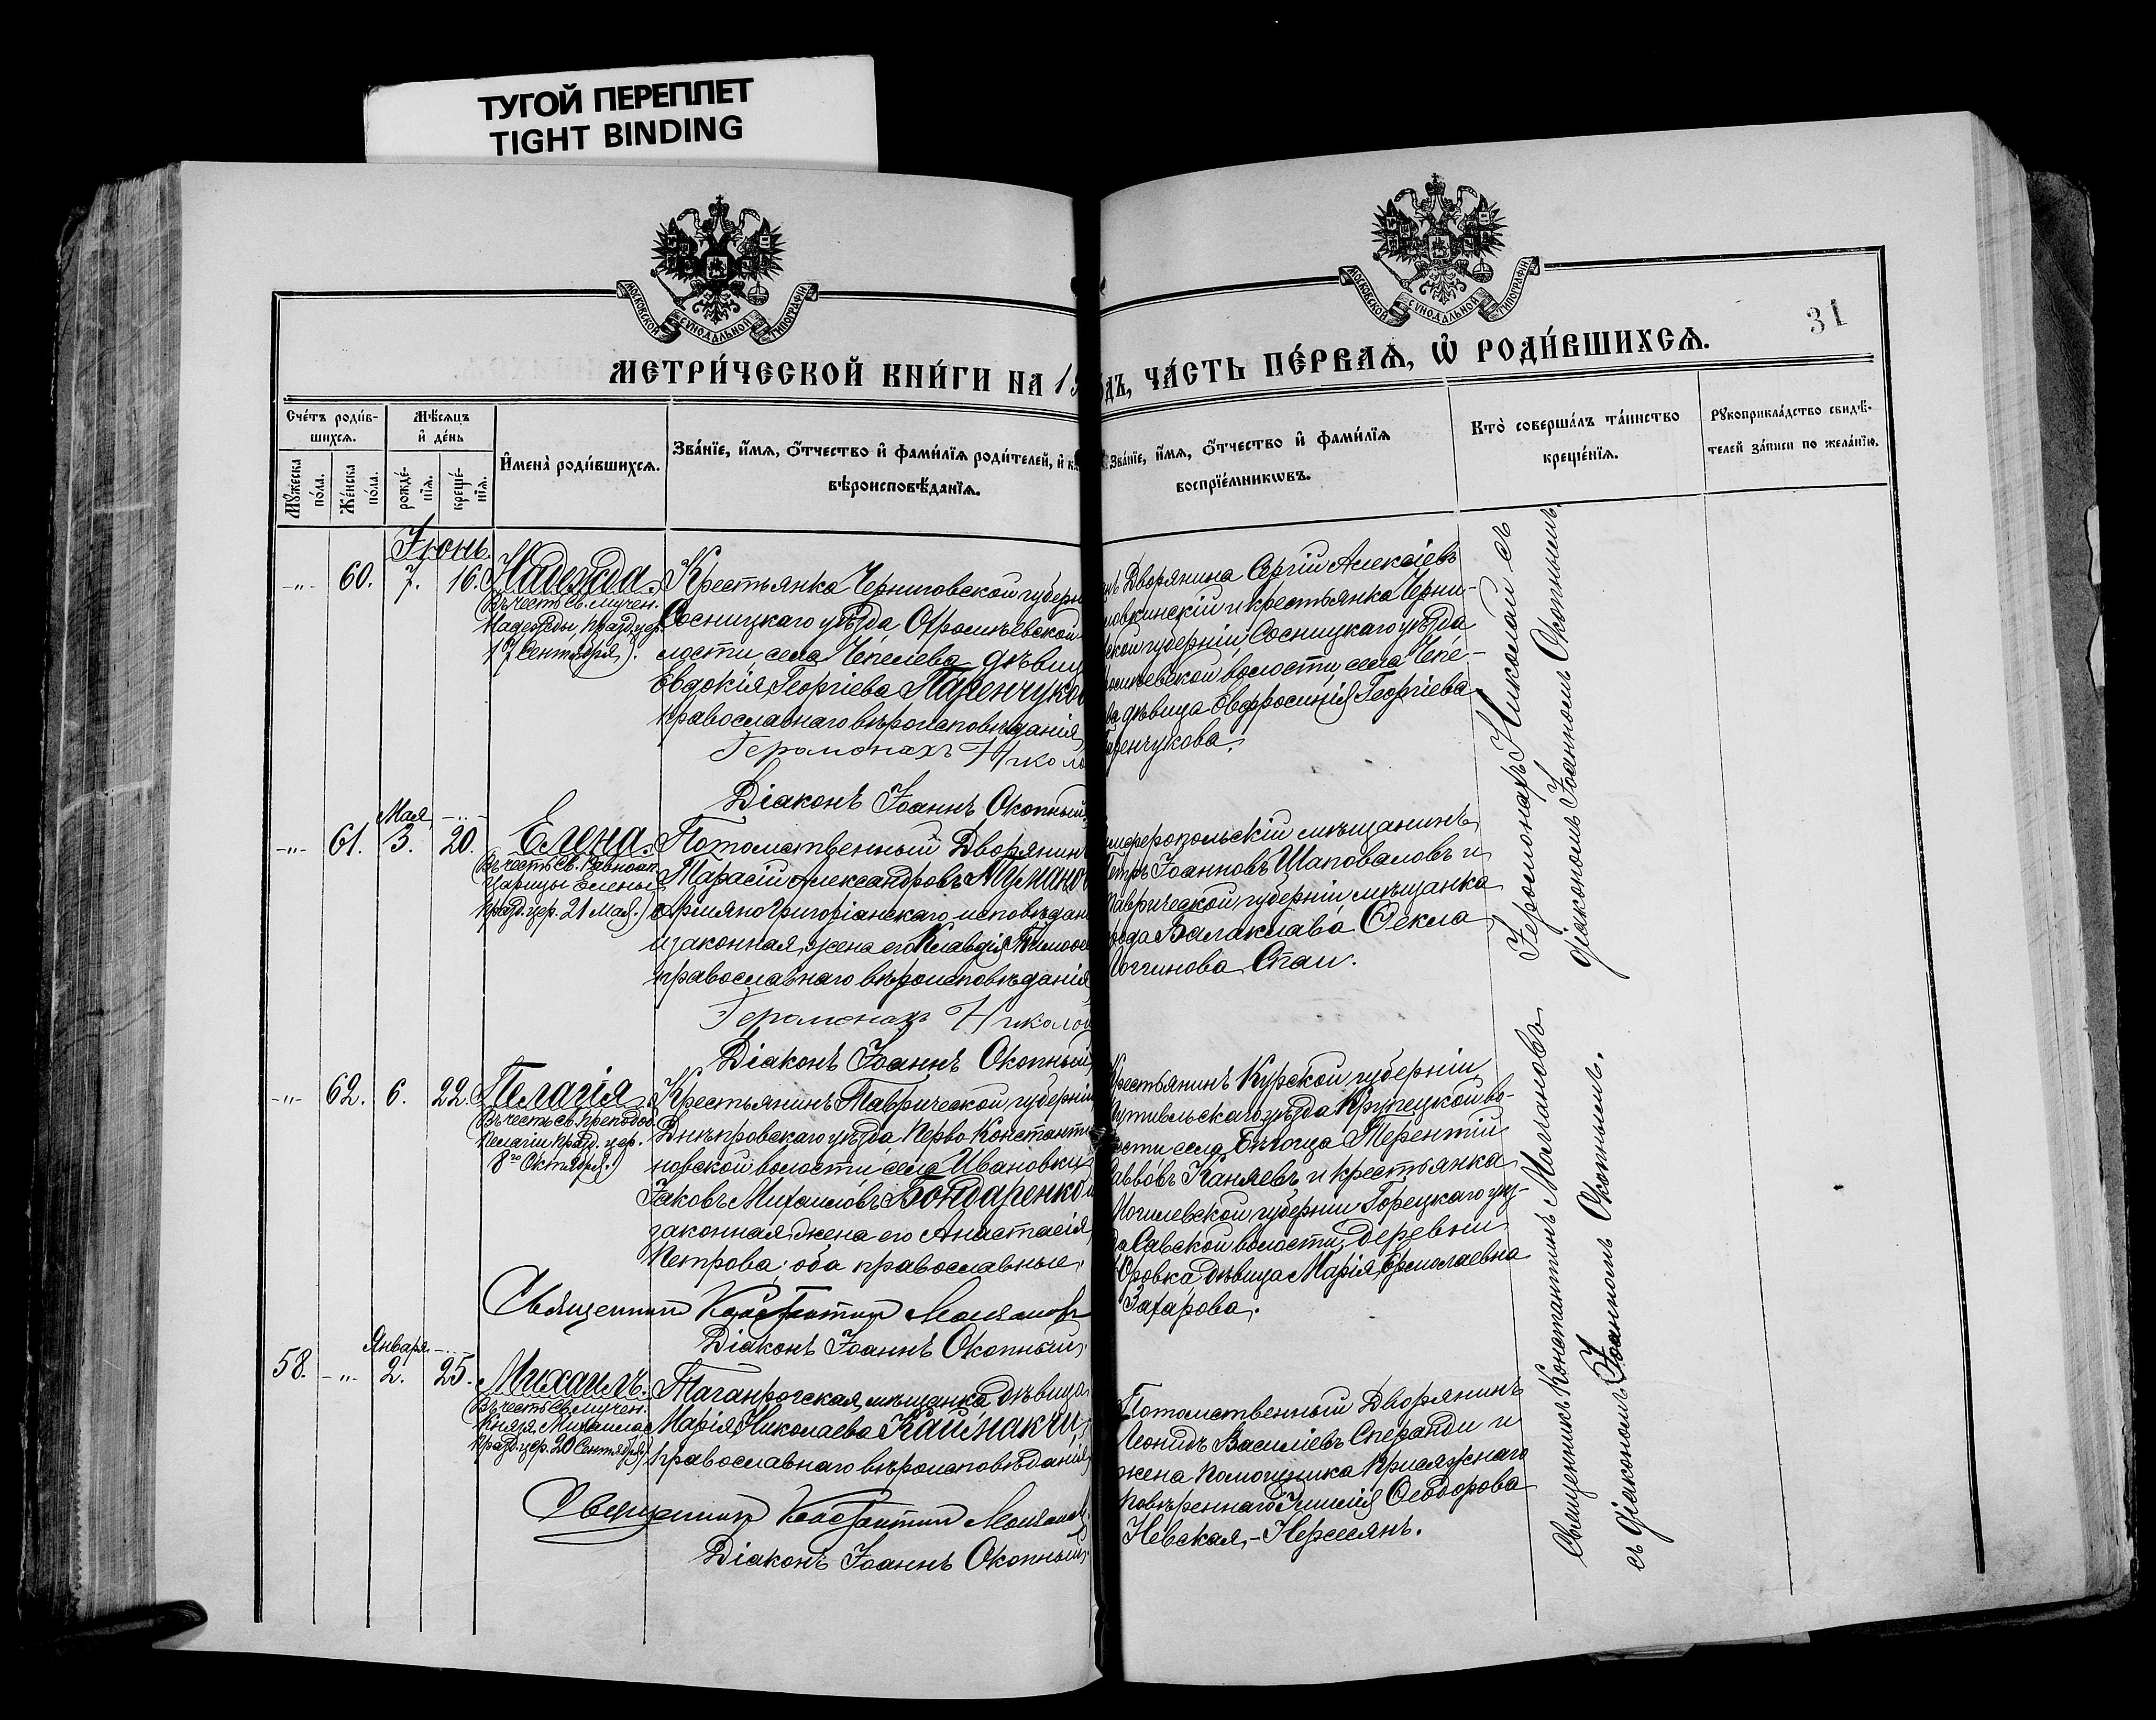 ТУГОЙ ПЕРЕПЛЕТ
TIGHT BINDING
МОСКОВСКОЙ СѴНОДАЛЬНОЙ ТИПОГРАФІИ
МОСКОВСКОЙ СѴНОДАЛЬНОЙ ТИПОГРАФІИ
31
МЕТРИ́ЧЕСКОЙ КНИ́ГИ НА 1
ЧА́СТЬ ПЕ́РВАѦ, Ѡ҆ РОДИ́ВШИХСѦ.
Сче́тъ роди́в-
шихсѧ.
Мѣ́сѧцъ
и҆ де́нь
Мꙋ́жеска
по́ла.
Же́нска
по́ла.
рожде́-
нїѧ.
креще́-
нїѧ.
И҆мена̀ роди́вшихсѧ.
Зва́нїе, и҆́мѧ, ѻ҆́тчество и҆ фами́лїѧ роди́телей, и҆
вѣроисповѣ́данїѧ.
Зва́нїе, и҆́мѧ, ѻ҆́тчество и҆ фами́лїѧ
воспрїе́мникѡвъ.
Кто̀ соверша́лъ та́инство
креще́нїѧ.
Рꙋкоприкла́дство свидѣ́-
телей за́писи по жела́нїю.
Іюнь.
-„- 60. 7. 16. Надежда.
(Въ честь Св. мучен.
Надежды, празд. цер.
17 Сентября).
Крестьянка Черниговской губерн
Сосницкаго уѣзда
лости, села Чепелева, дѣвиц
Евдокія Георгіева Паренчуков
православнаго вѣроисповѣданія
Іеромонахъ Никола
Діаконъ Іоаннъ Окопный
Дворянина Сергій Алексіевъ
и крестьянка Черни-
ской губерніи, Сосницкаго уѣзда
волости, села Чепе-
ва дѣвица Евфросинія Георгіева
ренчукова.
Іеромонахъ Николай съ
діакономъ Іоанномъ Окопнымъ.
Мая -„-
-„- 61. 3. 20. Елена.
(Въ честь Св. Равноап.
Царицы Елены
празд. цер. 21 Мая.)
Потомственный Дворянинъ
Тарасій Александровъ Тумано
Армяно Григоріанскаго исповѣдан
и законная жена его Клавдія Тимоѳе
православнаго вѣроисповѣданія
Іеромонахъ Николай
Діаконъ Іоаннъ Окопный
имферопольскій мѣщанинъ
Петръ Іоанновъ Шаповаловъ и
Таврической губерніи мѣщанка
рода Балаклава Ѳекла
Логгинова Спаи.
-„- 62. 6. 22. Пелагія
(Въ честь Св. Преподоб.
Пелагіи празд. цер.
8го Октября.)
Крестьянинъ Таврической губерніи
Днѣпровскаго уѣзда Перво Константи
новской волости, села Ивановки
Іаковъ Михаиловъ Бондаренко и
законная жена его Анастасія
Петрова; оба православные.
Священникъ Константинъ Молчановъ
Діаконъ Іоаннъ Окопный
Крестьянинъ Курской губерніи,
Путивльскаго уѣзда Крупецкой во-
лости села Терентій
Савво́въ Каняевъ и крестьянка
Могилевской губерніи Горецкаго уѣз-
да Савской волости, деревни
Оровка дѣвица Марія Ермолаевна
Захарова.
Священникъ Константинъ Молчановъ
съ діакономъ Іоанномъ Окопнымъ.
Января -„-
58. -„- 2. 25. Михаилъ.
(Въ честь Св. мучен.
Князя Михаила
празд. цер. 20 Сентября)
Таганрогская мѣщанка дѣвица
Марія Николаева Каймакчи,
православнаго вѣроисповѣданія
Священникъ Константинъ Молчановъ
Діаконъ Іоаннъ Окопный
Потомственный Дворянинъ
Леонидъ Василіевъ Сперанди и
жена помощника присяжнаго
повѣреннаго Ѳеодорова
Невская-Нерсесянъ.